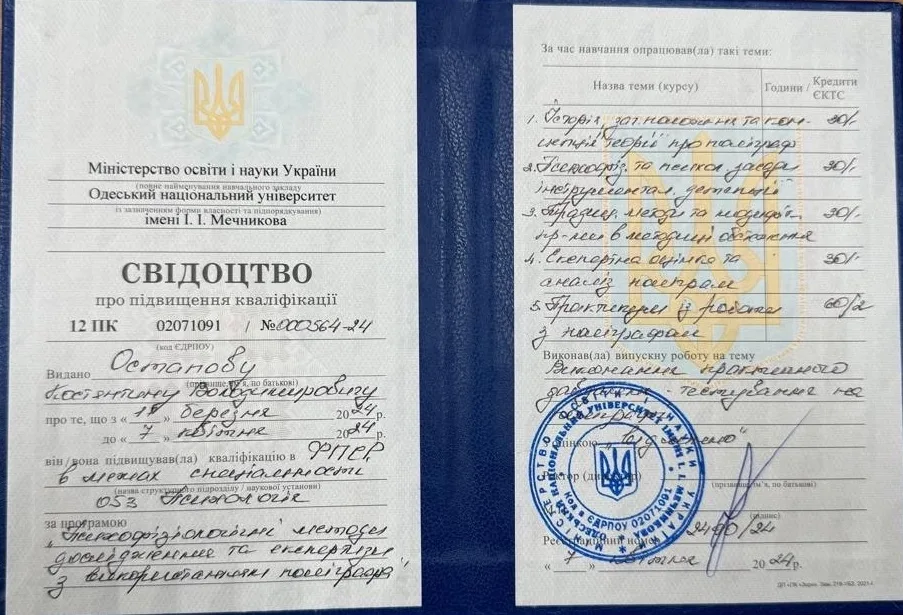 Міністерство освіти і науки України
(повне найменування навчального закладу
Одеський національний університет
із зазначенням форми власності та підпорядкування)
імені І. І. Мечникова
СВІДОЦТВО
про підвищення кваліфікації
12 ПК 02071091 / №000564-24
(код ЄДРПОУ)
Видано Остапову
(прізвище, ім'я, по батькові)
Костянтину Володимировичу
про те, що з « » березня 2024 р.
до « 7 » квітня 2024 р.
він/вона підвищував(ла) кваліфікацію в ФПСР
в межах спеціальности
(назва структурного підрозділу / наукової установи)
053 Психологія
за програмою
„Психофізіологічні методи
дослідження та експертизи
з використанням поліграфа"
За час навчання опрацював(ла) такі теми:
Назва теми (курсу) Години / Кредити ЄКТС
1. Історія, заг. положення та 30/1
теорії про поліграф
2. Психофіз. та психол. засади 30/1
інструментал. детекції
3. Традиц. методи та 30/1
в методиці обстеження
4. Експертна оцінка та 30/1
аналіз поліграм
5. Практикум із роботи 60/2
з поліграфом
Виконав(ла) випускну роботу на тему
Виконання практичного
тестування на
поліграфі
оцінкою „відмінно"
Ректор
(прізвище, ім'я, по батькові)
(підпис)
Реєстраційний номер 2490/24
« 7 » квітня 2024 р.
МІНІСТЕРСТВО ОСВІТИ І НАУКИ УКРАЇНИ
ОДЕСЬКИЙ НАЦІОНАЛЬНИЙ УНІВЕРСИТЕТ ІМЕНІ І. І. МЕЧНИКОВА
КОД В ЄДРПОУ 02071091